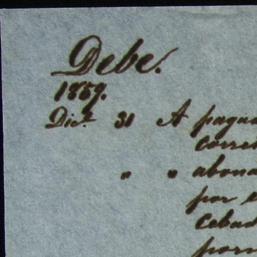 Debe.
1859.
Dic.e 31 A pagad
corre
" " abona
por e
Cebad
por